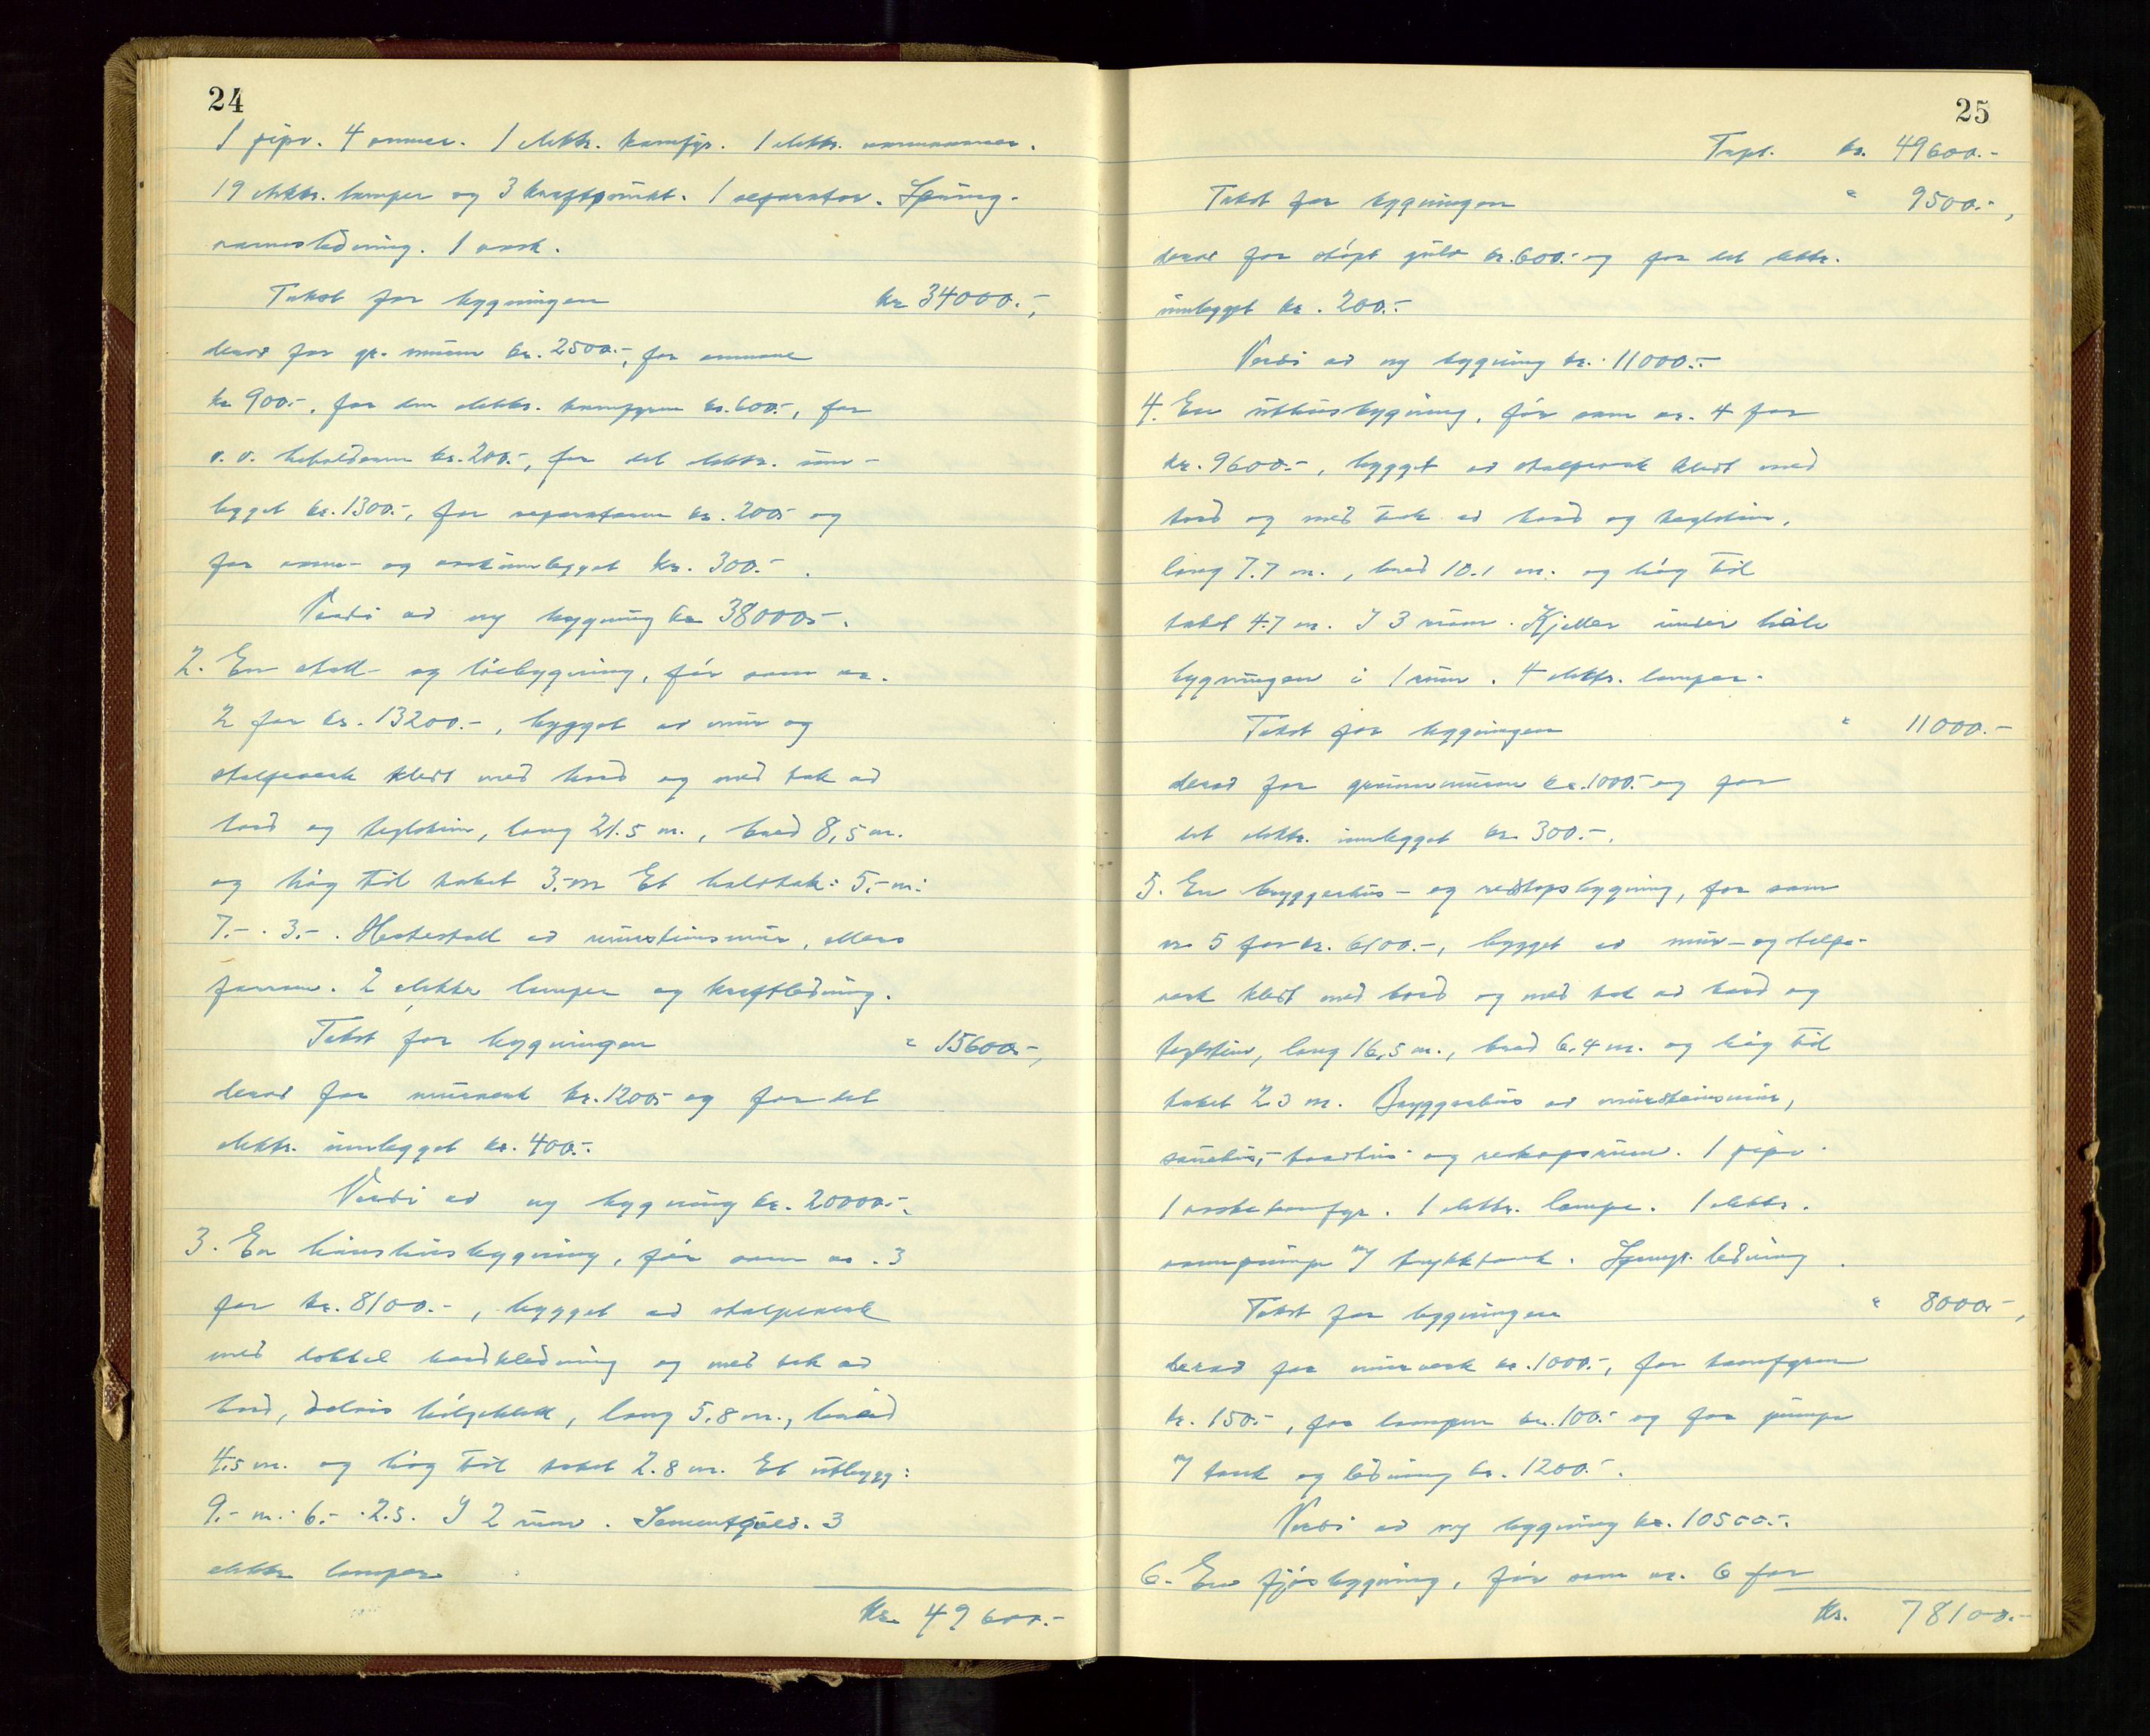 24
1 pipe. 4 omner. 1 elektr. komfyr. 1 elektr. varmeovner.
19 elektr. lamper og 3 kraftpunkt. 1 separator. Spring-
vannsledning. 1 vask.
Takst for bygningen kr 34000.-,
derav for gr. muren kr. 2500.-, for omnane
kr 900.-, for den elektr. komfyren kr. 600.-, for
v.v. beholderen kr. 200.-, for det elektr. inn-
legget kr. 1300.-, for separatoren kr. 200.- og
for vann- og vaskinnlegget kr. 300.-.
Verdi av ny bygning kr 38000.-.
2. En stall- og löebygning, för som nr.
2 for kr. 13200.-, bygget av mur og
stolpeverk kledt med bord og med tak av
bord og teglstein, lang 21.5 m., bred 8,5 m.
og hög til taket 3.-m Et halvtak: 5.-m:
7.- . 3.-. Hestestall av murstensmur, ellers
2 elektr lamper og kraftledning.
Takst for bygningen " 15600.-,
derav for murverk kr. 1200.- og for det
elektr. innlegget kr. 400.-.
Verdi av ny bygning kr. 20000.-.
3. En hönsehusbygning, för som nr. 3
for kr. 8100.-, bygget av stolpeverk
med dobbel bordkledning og med tak av
bord, delvis bölgeblekk, lang 5.8 m., breid
4.5 m. og hög til taket 2.8 m. Et utbygg:
9.- m. : 6.- . 2.5. I 2 rum. Sementgolv. 3
elektr lamper.
Kr. 49600.-
25
Trpt. kr. 49600.-
Takst for bygningen " 9500.-,
derav for stöpt gulv kr. 600.- og for det elektr.
innlegget kr. 200.-
Verdi av ny bygning kr. 11000.-
4. En uthusbygning, för som nr. 4 for
kr. 9600.-, bygget av stolpeverk kledt med
bord og med tak av bord og teglstein,
lang 7.7 m., bred 10.1 m. og hög til
taket 4.7 m. I 3 rum. Kjeller under hele
bygningen i 1 rum. 4 elektr. lamper.
Takst for bygningen " 11000.-
derav for grunnmuren kr. 1000.- og for
det elektr. innlegget kr 300.-.
5. En bryggerhus- og redskapsbygning, för som
nr 5 for kr. 6100.-, bygget av mur- og stolpe-
verk kledt med bord og med tak av bord og
teglstein, lang 16,5 m., bred 6.4 m. og hög til
taket 2.3 m. Bryggerhus av murstensmur,
sauehus,- vedhus- og redskapsrum. 1 pipe.
1 vaskekomfyr. 1 elektr. lampe. 1 elektr.
vannpumpe m/ trykktank. Spring. ledning.
Takst for bygningen " 8000.-,
derav for murverk kr. 1000.-, for komfyren
kr. 150.-, for lampen kr. 100.- og for pumpe
m/ tank og ledning kr. 1200.-.
Verdi av ny bygning kr. 10500.-.
6. En fjösbygning, för som nr. 6 for
Kr. 78100.-